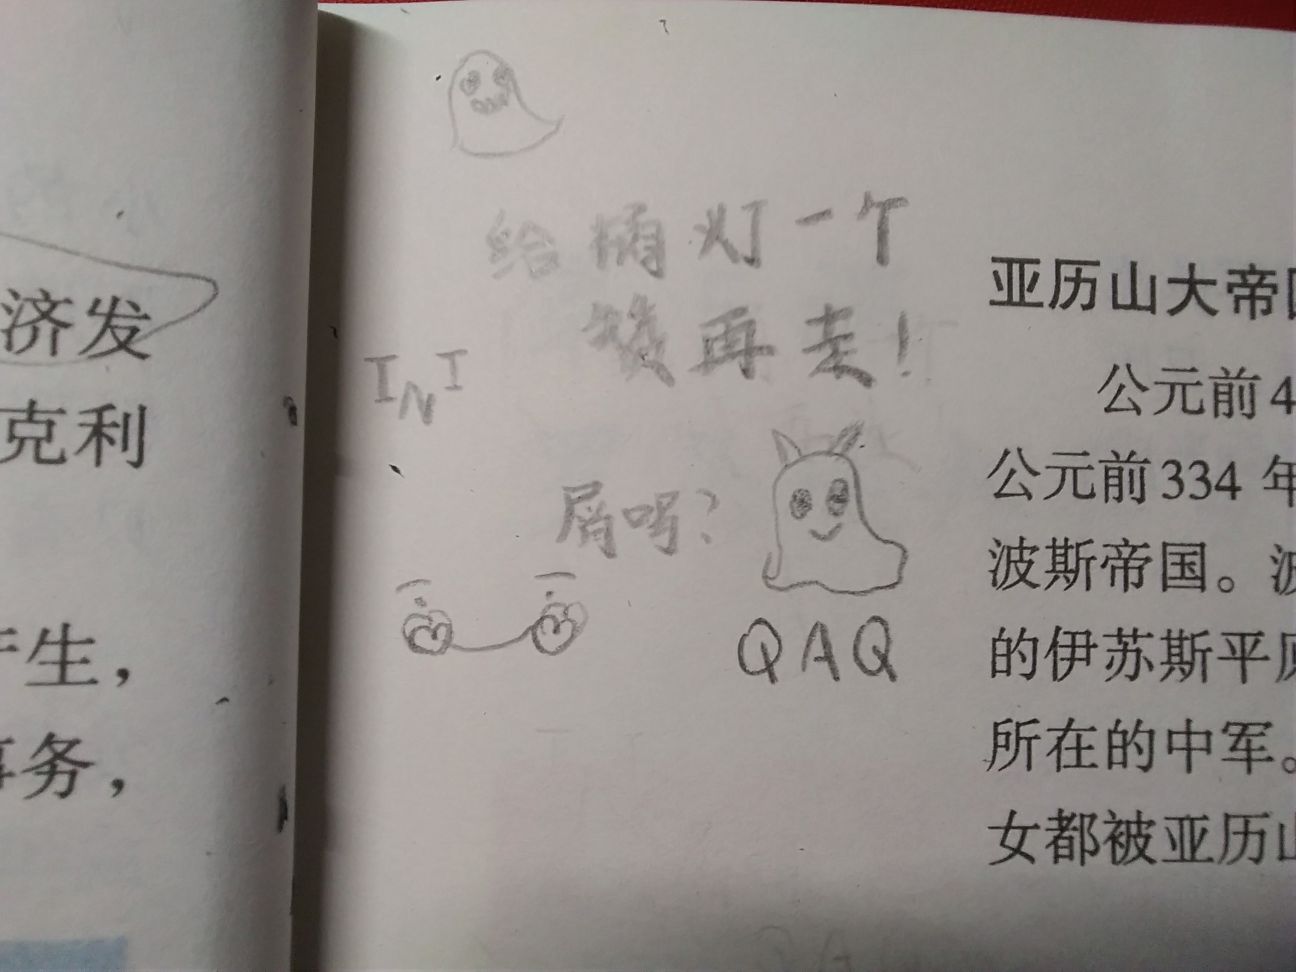 济发
克利
生，
务，
给 灯一个
赞再走！
INI
屑吗？
QAQ
亚历山大帝
公元前4
公元前334 年
波斯帝国。波
的伊苏斯平原
所在的中军。
女都被亚历山